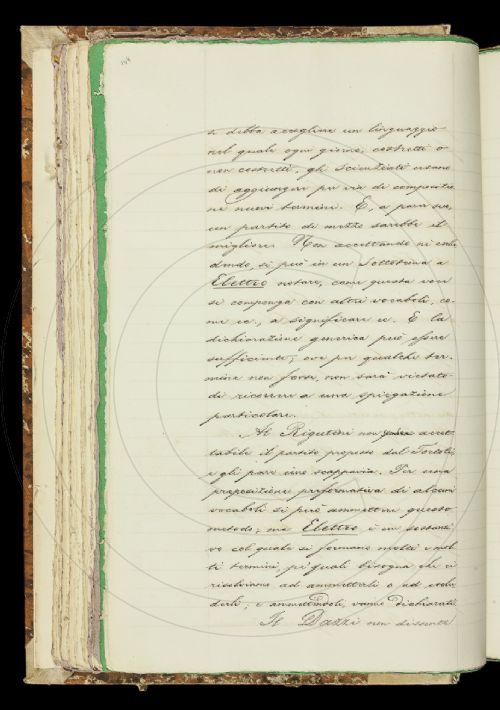 si debba accogliere un linguaggio
nel quale ogni giorno, costretti o
non costretti, gli Scienziati usano
di aggiungere per via di composizio
ni nuovi termini. E, a parer suo,
un partito di mezzo sarebbe il
migliore. Non accettando né esclu
dendo, si può in un Sottotema a
Elettro notare, come questa voce
si componga con altri vocaboli, co-
me ec., a significare ec. E la
dichiarazione generica può essere
sufficiente; ove per qualche ter-
mine non fosse, non sarà vietato
di ricorrere a una spiegazione
particolare.
Al Rigutini non pare accet
tabile il partito proposto dal Tortoli,
e gli pare una scappavia. Per una
preposizione preformativa di alcuni
vocaboli si può ammettere questo
metodo; ma Elettro è un sostanti
vo col quale si formano molti e mol
ti termini, pe' quali bisogna che ci
risolviamo ad ammetterli o ad esclu
derli; e ammettendoli, vanno dichiarati.
Il Dazzi non dissente